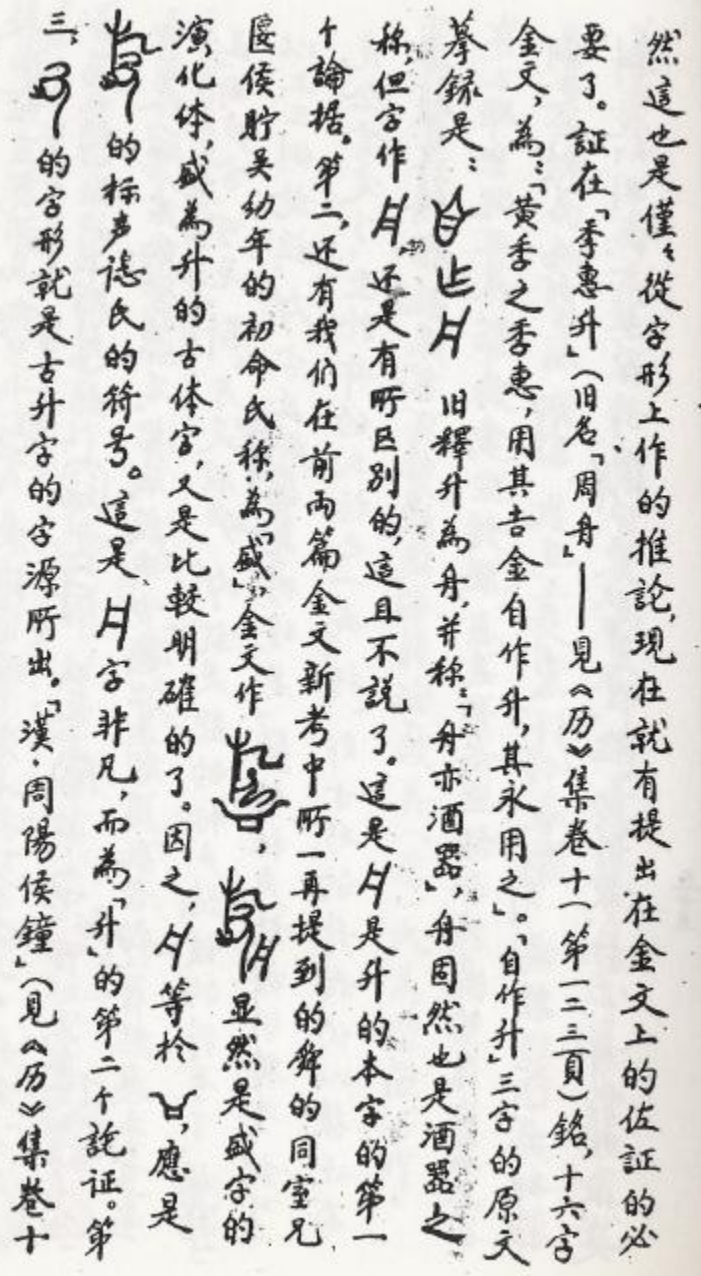 然這也是僅々從字形上作的推論,現在就有提出在金文上的佐証的必
要了。証在「季惠升」(旧名「周舟」——見《历》集卷十一第一二三頁)銘,十六字
金文,為:「黄季之季惠,用其吉金自作升,其永用之」。「自作升」三字的原文
摹録是: 旧釋升為舟,并称:「舟亦酒器」,舟固然也是酒器之
称,但字作 还是有所区别的,這且不説了。這是 是升的本字的第一
个論据。第二,还有我们在前两篇金文新考中所一再提到的 的同室兄
匽侯貯吴幼年的初命氏称,為「盛」,金文作 , 显然是盛字的
演化体,盛為升的古体字,又是比較明確的了。因之, 等於 ,應是
的标声誌氏的符号。這是 字非凡,而為「升」的第二个証証。第
三, 的字形就是古升字的字源所出。「漢·周陽侯鐘」(見《历》集卷十